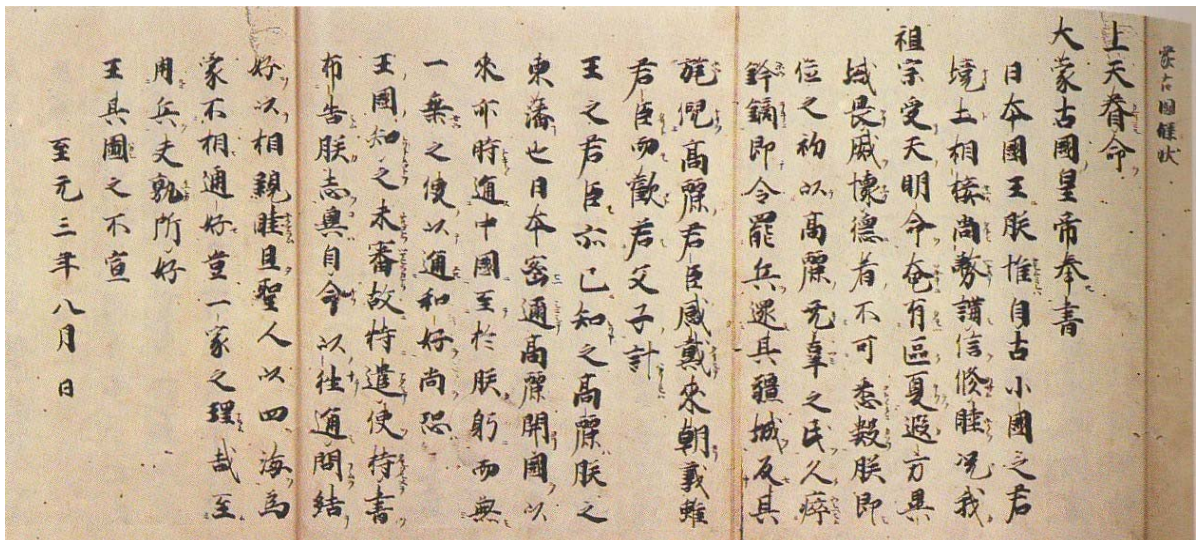 蒙古國牒状
上天眷命
大蒙古國皇帝奉書
日本國王朕惟自古小國之君
境土相接尚務講信修睦况我
祖宗受天明命奄有區夏遐方異
域畏威懷德者不可悉數朕即
位之初以高麗无辜之民久瘁
鋒鏑即令罷兵還其疆域反其
旄倪高麗君臣感戴來朝義雖
君臣而歡若父子計
王之君臣亦已知之高麗朕之
東藩也日本密邇高麗開國以
來亦時通中國至於朕躬而無
一乗之使以通和好尚恐
王國知之未審故特遣使持書
布告朕志冀自今以往通問結
好以相親睦且聖人以四海為
家不相通好豈一家之理哉至
用兵夫孰所好
王其圖之不宣
至元三年八月 日